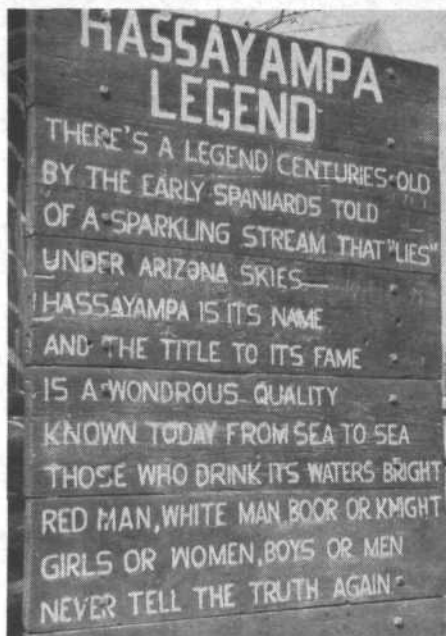 HASSAYAMPA
LEGEND
THERE'S A LEGEND CENTURIES OLD
BY THE EARLY SPANIARDS TOLD
OF A SPARKLING STREAM THAT "LIES"
UNDER ARIZONA SKIES—
HASSAYAMPA IS ITS NAME
AND THE TITLE TO ITS FAME
IS A WONDROUS QUALITY
KNOWN TODAY FROM SEA TO SEA
THOSE WHO DRINK ITS WATERS BRIGHT
RED MAN, WHITE MAN BOOR OR KNIGHT
GIRLS OR WOMEN, BOYS OR MEN
NEVER TELL THE TRUTH AGAIN